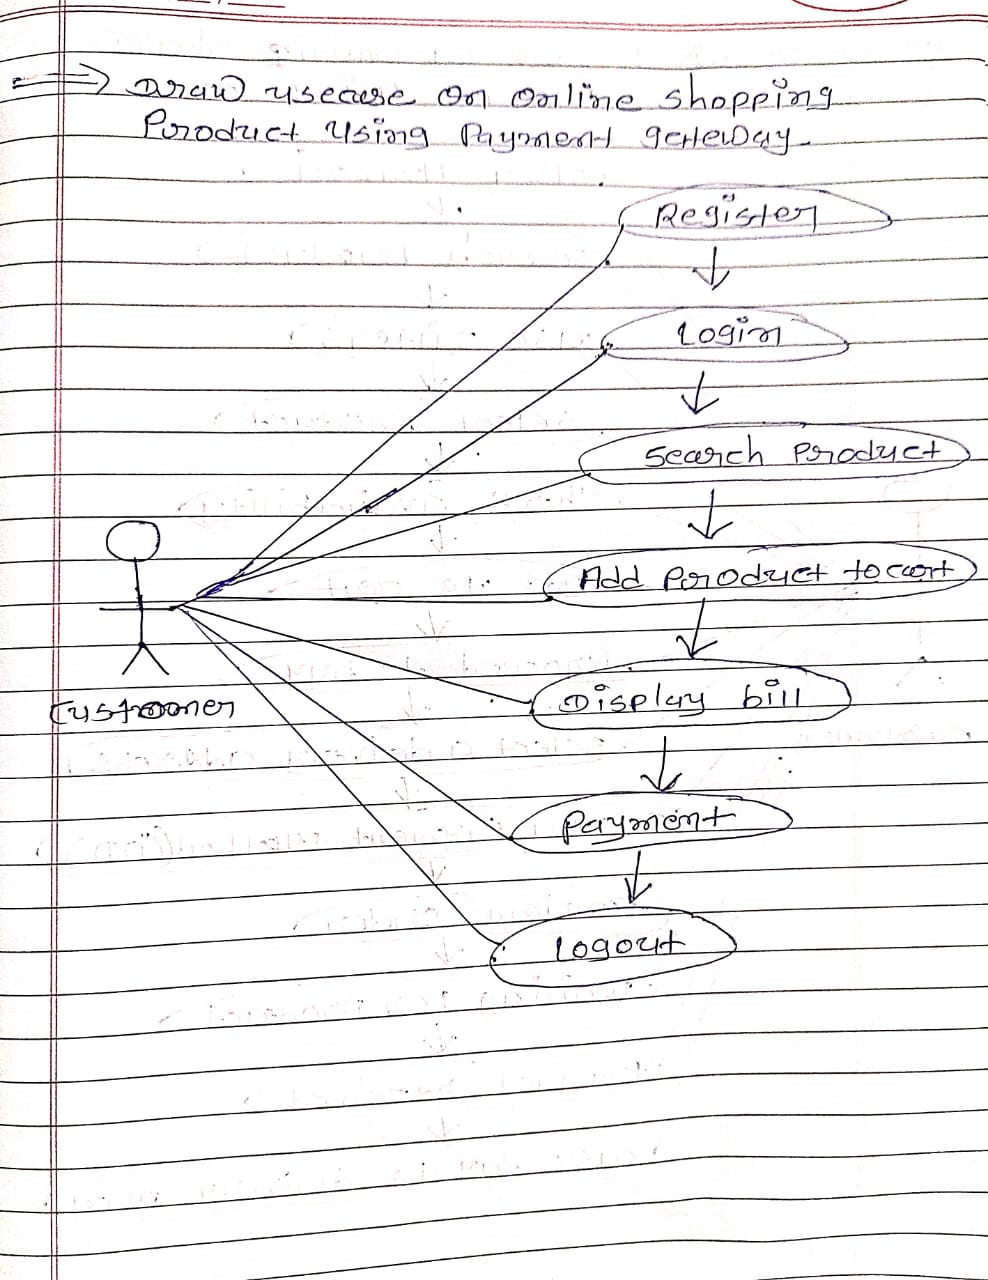 Draw usecase on online shopping
Product using Payment gateway.
Register
Login
Search Product
Add Product to cart
Display bill
Customer
Payment
Logout